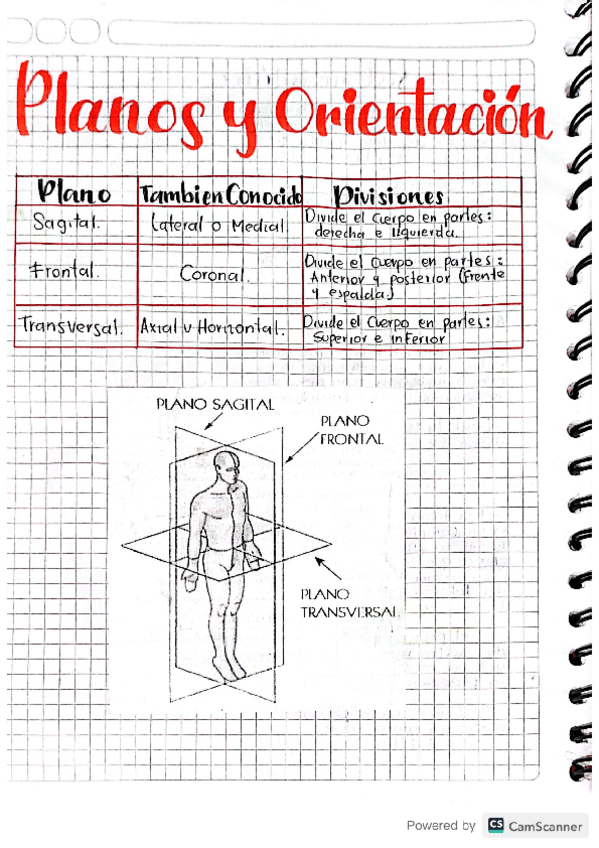 Planos y Orientación
Plano TambienConocido Divisiones
Sagital. Lateral o Medial. Divide el cuerpo en partes:
derecha e Izquierda.
Frontal. Coronal. Divide el cuerpo en partes:
Anterior y posterior (Frente
y espalda)
Transversal. Axial u Horizontal. Divide el Cuerpo en partes:
Superior e inferior
PLANO SAGITAL
PLANO
FRONTAL
PLANO
TRANSVERSAL
Powered by CS CamScanner